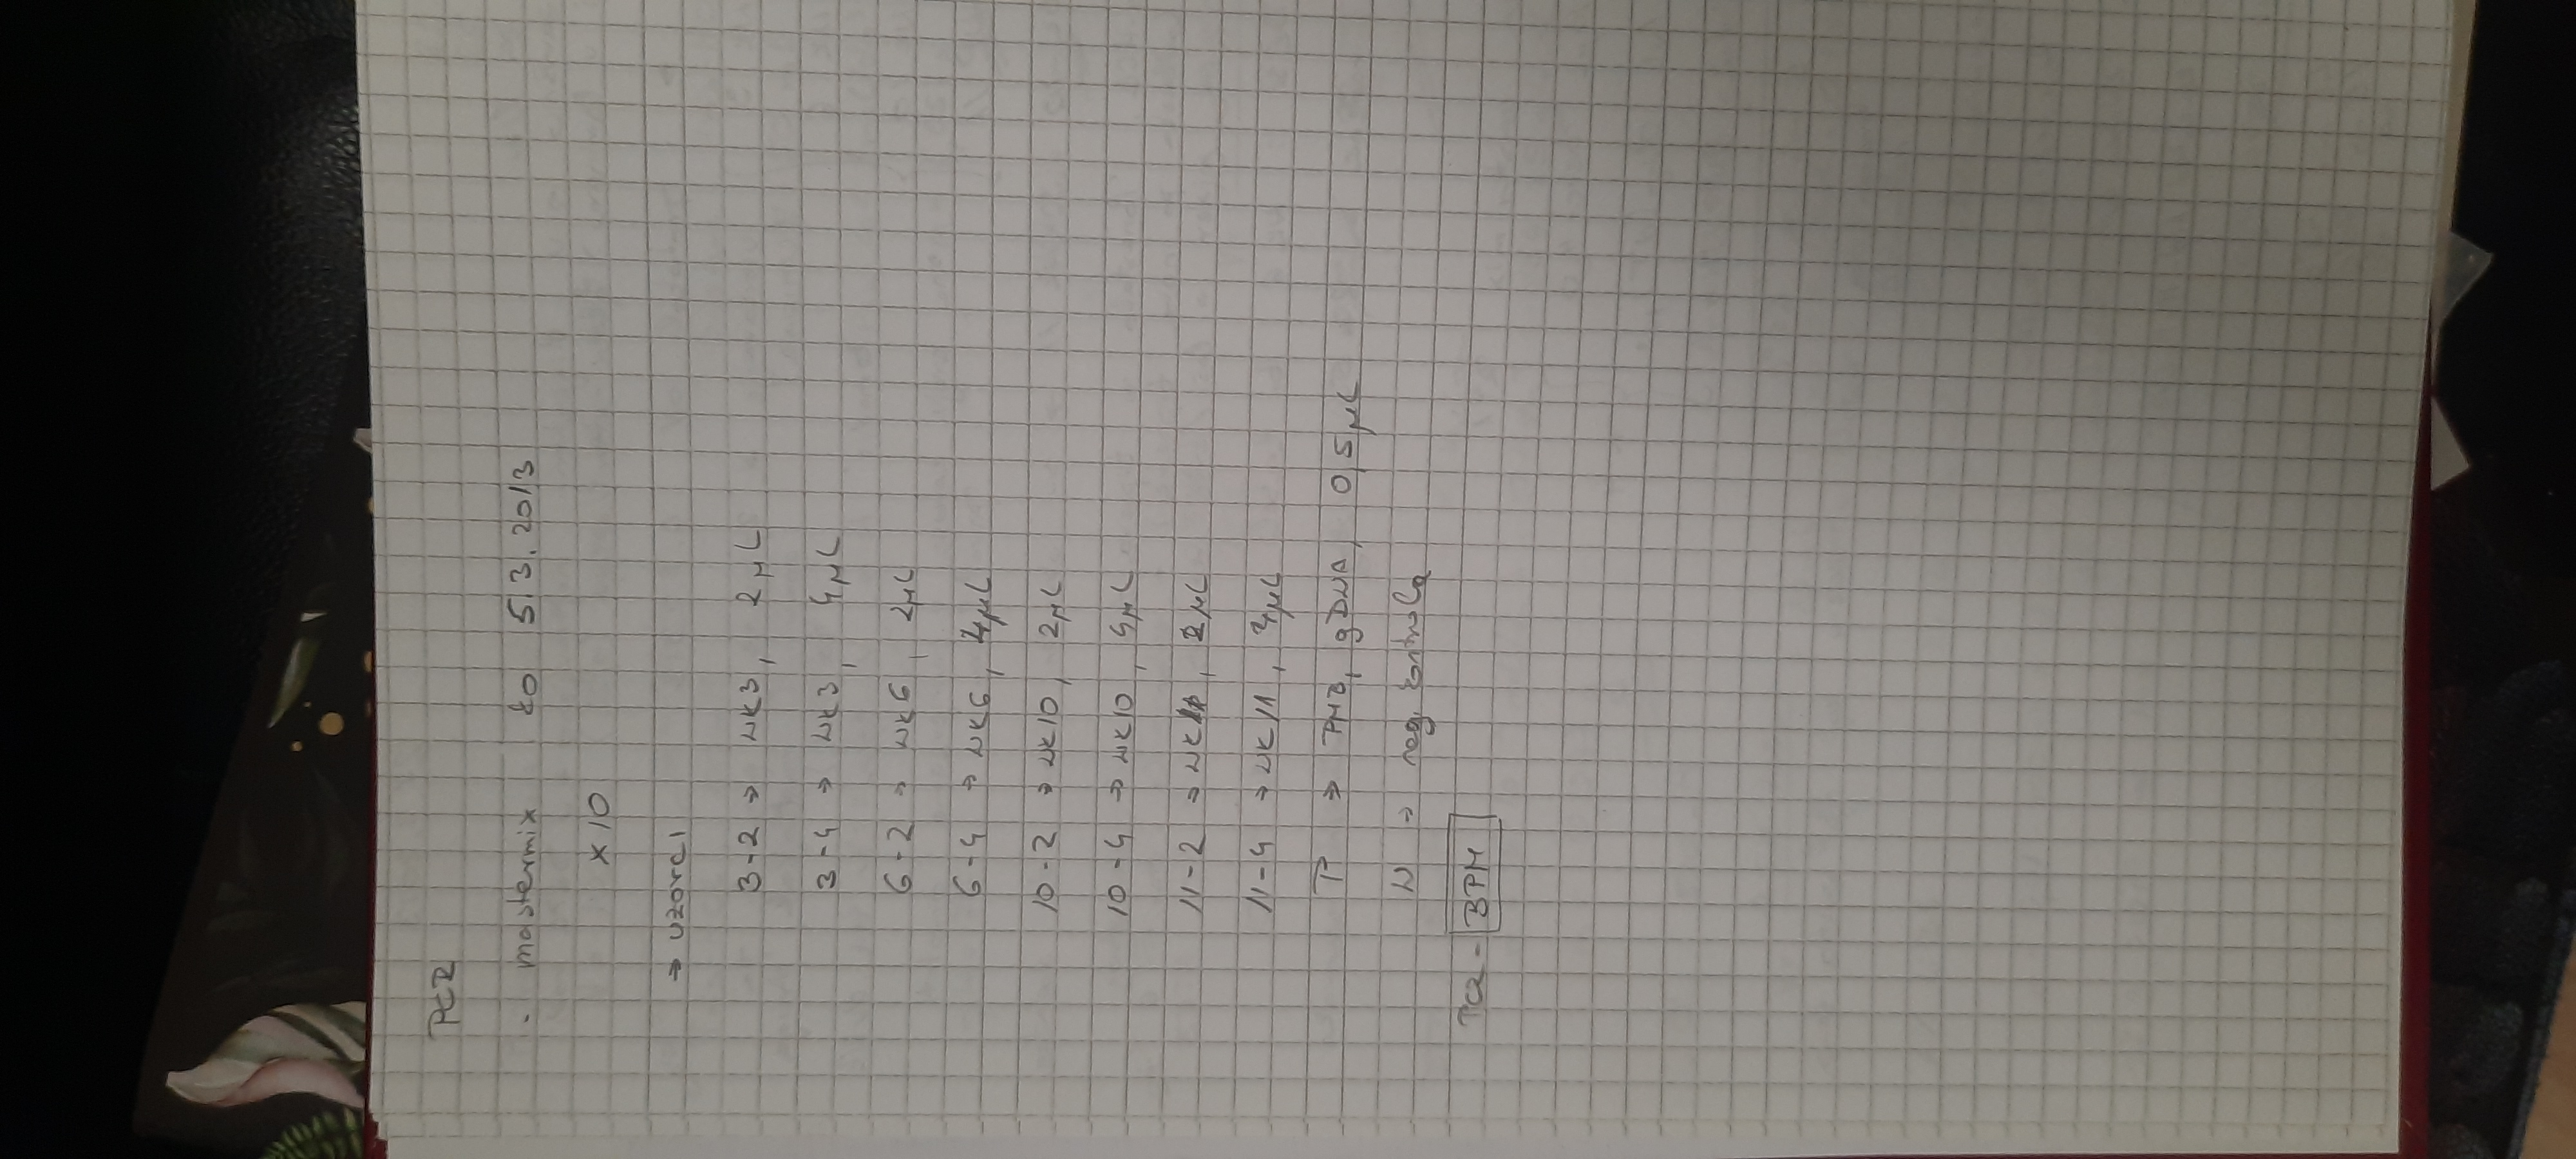 PCR
· mastermix ko 5.3.2013
x 10
→ uzorci
3-2 → NK3, 2 μL
3-4 → NK3, 4 μL
6-2 → NK6, 2 μL
6-4 → NK6, 4 μL
10-2 → NK10, 2 μL
10-4 → NK10, 4 μL
11-2 → NK11, 2 μL
11-4 → NK11, 4 μL
P → gDNA, 0,5 μL
N → neg. kontrola
Ta - BPM